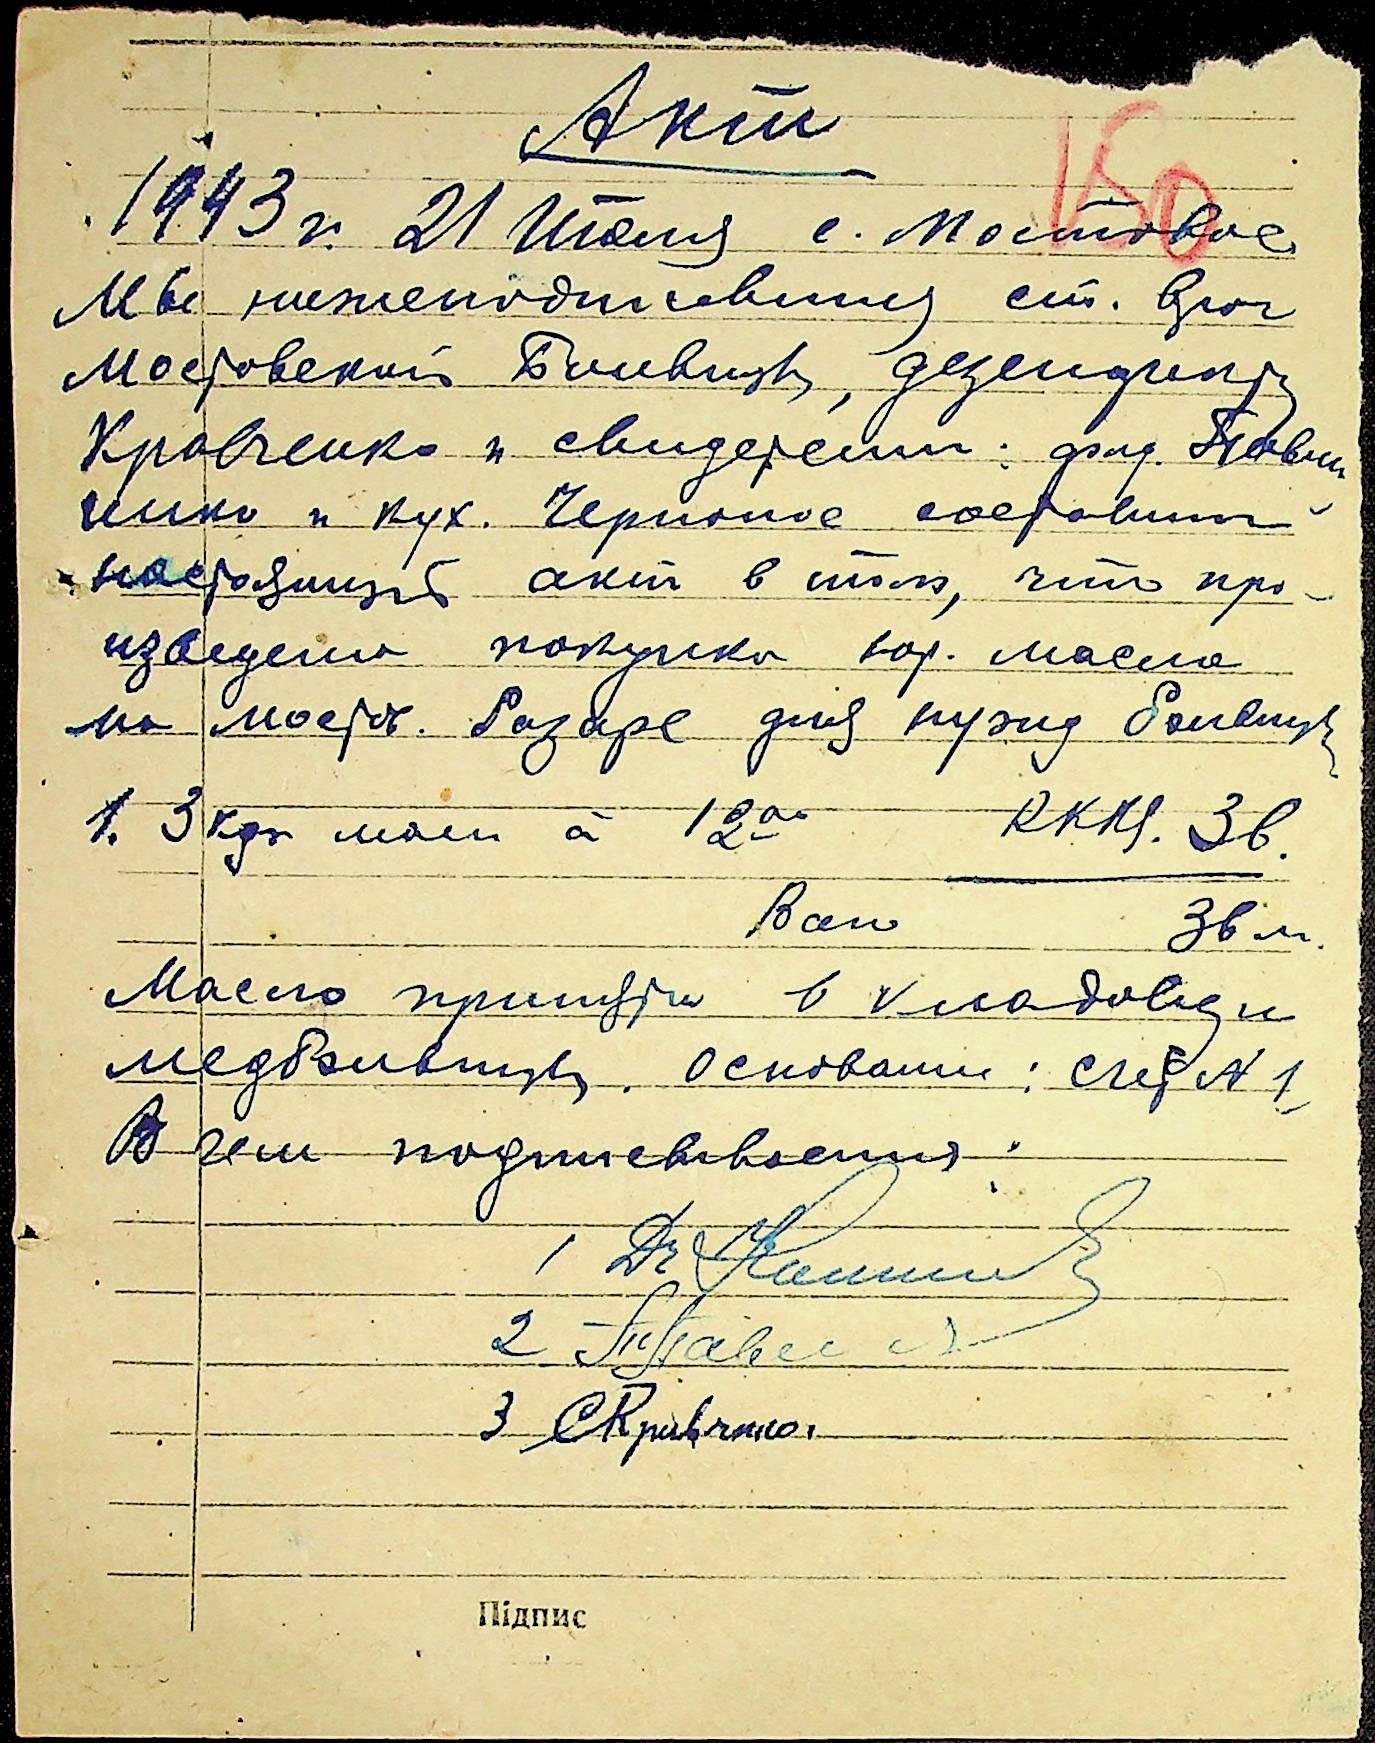 Акт
150
1943 г. 21 Июля с. Мостовое
Мы нижеподписавшиеся ст. врач
Мостовской Больницы, дезенфектор
Кравченко и свидетели: фельд. Павли
ченко и кух. Черненко составили
настоящий акт в том, что про-
изведена покупка кор. масла
на мостов. базаре для нужд больницы
1. 3 кгр масла à 12 RKKS. 36.
Всего 36 м.
Масло принято в кладовую
медбольницы. Основание: счет N 1
В чем подписываемся:
1 Dr
2
3 СКравченко.
Підпис